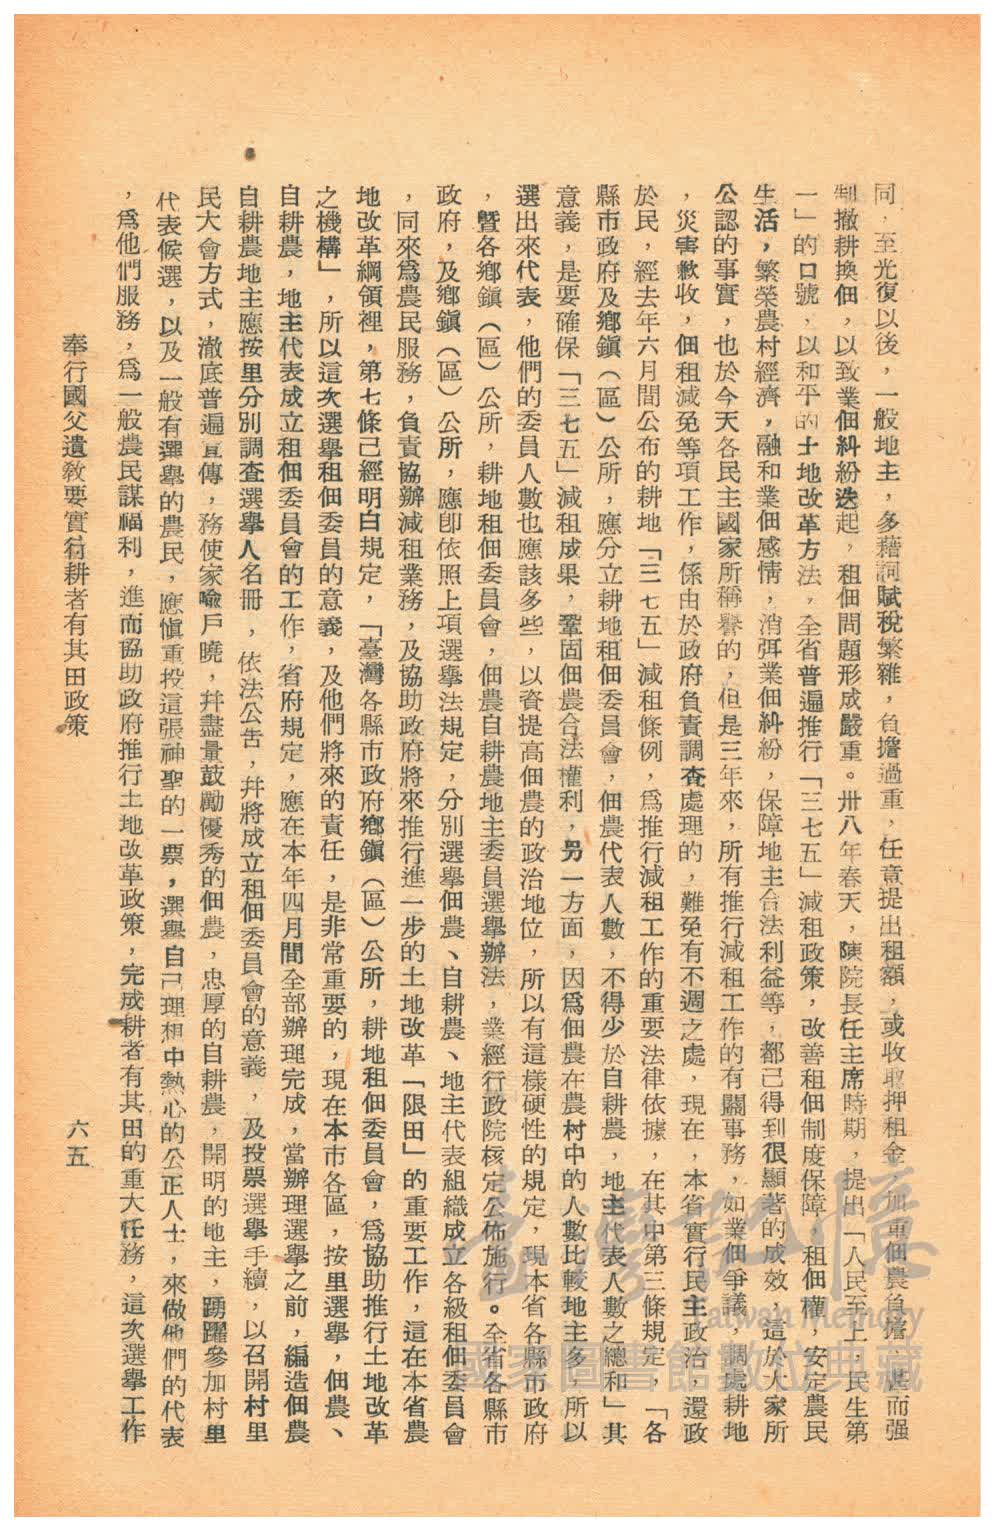 同，至光復以後，一般地主，多藉詞賦稅繁雜，負擔過重，任意提出租額，或收取押租金，加重佃農負擔，甚而强
制撤耕換佃，以致業佃糾紛迭起，租佃問題形成嚴重。卅八年春天，陳院長任主席時期，提出「人民至上，民生第
一」的口號，以和平的土地改革方法，全省普遍推行「三七五」減租政策，改善租佃制度保障，租佃權，安定農民
生活，繁榮農村經濟，融和業佃感情，消弭業佃糾紛，保障地主合法利益等，都已得到很顯著的成效，這於大家所
公認的事實，也於今天各民主國家所稱譽的，但是三年來，所有推行減租工作的有關事務，如業佃爭議，調處耕地
，災害歉收，佃租減免等項工作，係由於政府負責調查處理的，難免有不週之處，現在，本省實行民主政治，還政
於民，經去年六月間公布的耕地「三七五」減租條例，爲推行減租工作的重要法律依據，在其中第三條規定，「各
縣市政府及鄉鎭（區）公所，應分立耕地租佃委員會，佃農代表人數，不得少於自耕農，地主代表人數之總和」其
意義，是要確保「三七五」減租成果，鞏固佃農合法權利，另一方面，因爲佃農在農村中的人數比較地主多，所以
選出來代表，他們的委員人數也應該多些，以資提高佃農的政治地位，所以有這樣硬性的規定，現本省各縣市政府
，暨各鄉鎭（區）公所，耕地租佃委員會，佃農自耕農地主委員選舉辦法，業經行政院核定公佈施行。全省各縣市
政府，及鄉鎭（區）公所，應卽依照上項選舉法規定，分別選舉佃農、自耕農、地主代表組織成立各級租佃委員會
，同來爲農民服務，負責協辦減租業務，及協助政府將來推行進一步的土地改革「限田」的重要工作，這在本省農
地改革綱領裡，第七條已經明白規定，「臺灣各縣市政府鄉鎭（區）公所，耕地租佃委員會，爲協助推行土地改革
之機構」，所以這次選舉租佃委員的意義，及他們將來的責任，是非常重要的，現在本市各區，按里選舉，佃農、
自耕農，地主代表成立租佃委員會的工作，省府規定，應在本年四月間全部辦理完成，當辦理選舉之前，編造佃農
自耕農地主應按里分別調查選舉人名冊，依法公告，幷將成立租佃委員會的意義，及投票選舉手續，以召開村里
民大會方式，澈底普遍宣傳，務使家喩戶曉，幷盡量鼓勵優秀的佃農，忠厚的自耕農，開明的地主，踴躍參加村里
代表候選，以及一般有選舉的農民，應愼重投這張神聖的一票，選舉自己理想中熱心的公正人士，來做他們的代表
，爲他們服務，爲一般農民謀福利，進而協助政府推行土地改革政策，完成耕者有其田的重大任務，這次選舉工作
奉行國父遺敎要實行耕者有其田政策
六五
臺灣記憶
Taiwan Memory
國家圖書館數位典藏